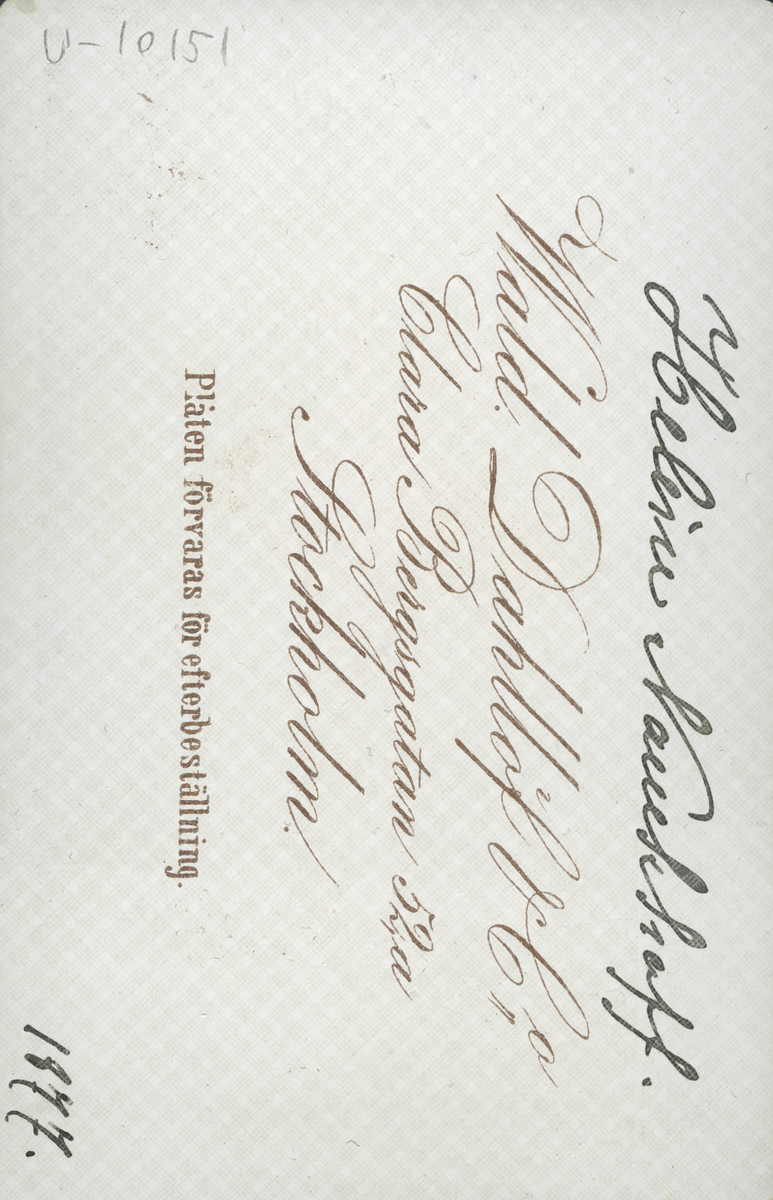 U-10151
Helene Nauckhoff.
Wald. Dahllöf & Co
Clara Bergsgatan 52a
Stockholm.
Plåten förvaras för efterbeställning.
1877.